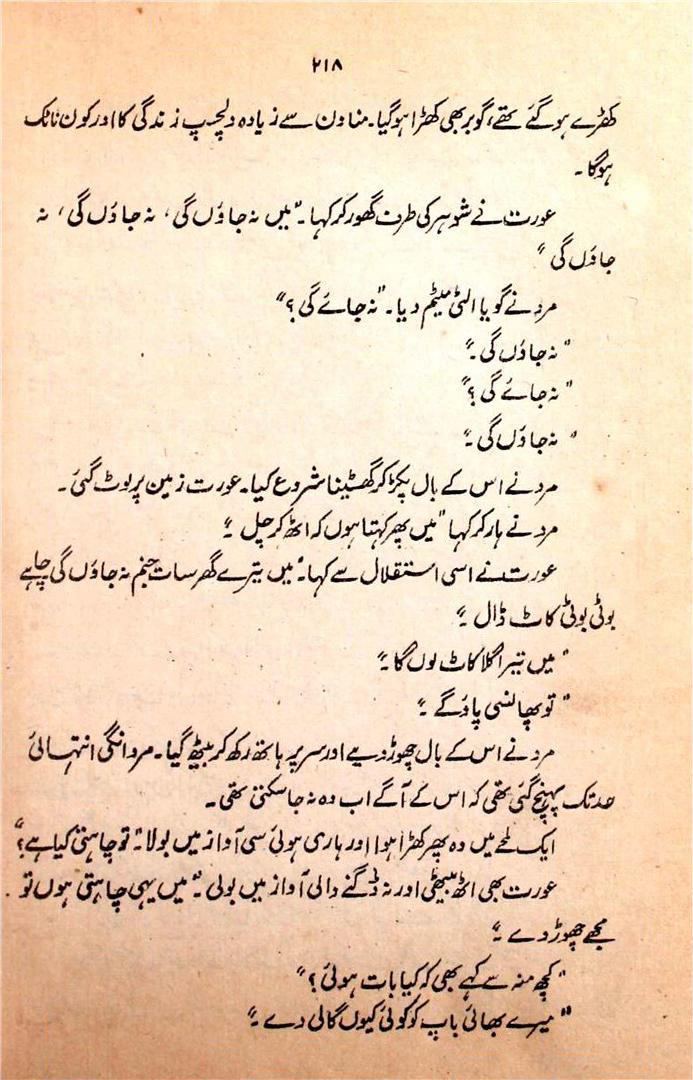 ۲۱۸
کھڑے ہو گئے تھے، گوبر بھی کھڑا ہو گیا۔ منادن سے زیادہ دلچسپ زندگی کا اور کون ناٹک
ہوگا۔
عورت نے شوہر کی طرف گھور کر کہا۔ "میں نہ جاؤں گی، نہ جاؤں گی، نہ
جاؤں گی"
مرد نے گویا الٹی میٹم دیا۔ "نہ جائے گی؟"
"نہ جاؤں گی۔"
"نہ جائے گی؟"
"نہ جاؤں گی۔"
مرد نے اس کے بال پکڑ کر گھسیٹنا شروع کیا۔ عورت زمین پر لوٹ گئی۔
مرد نے ہار کر کہا "میں پھر کہتا ہوں کہ اٹھ کر چل۔"
عورت نے اسی استقلال سے کہا۔ "میں تیرے گھر سات جنم نہ جاؤں گی چاہے
بوٹی بوٹی کاٹ ڈال۔"
"میں تیرا گلا کاٹ لوں گا۔"
"تو پھانسی پاؤگے۔"
مرد نے اس کے بال چھوڑ دیے اور سر پر ہاتھ رکھ کر بیٹھ گیا۔ مردانگی انتہائی
حد تک پہنچ گئی تھی کہ اس کے آگے اب وہ نہ جا سکتی تھی۔
ایک لمحے میں وہ پھر کھڑا ہوا اور ہاری ہوئی سی آواز میں بولا۔ "تو چاہتی کیا ہے؟"
عورت بھی اٹھ بیٹھی اور نہ ڈگنے والی آواز میں بولی۔ "میں یہی چاہتی ہوں تو
مجھے چھوڑ دے۔"
"کچھ منہ سے کہے بھی کہ کیا بات ہوئی؟"
"میرے بھائی باپ کو کوئی کیوں گالی دے۔"